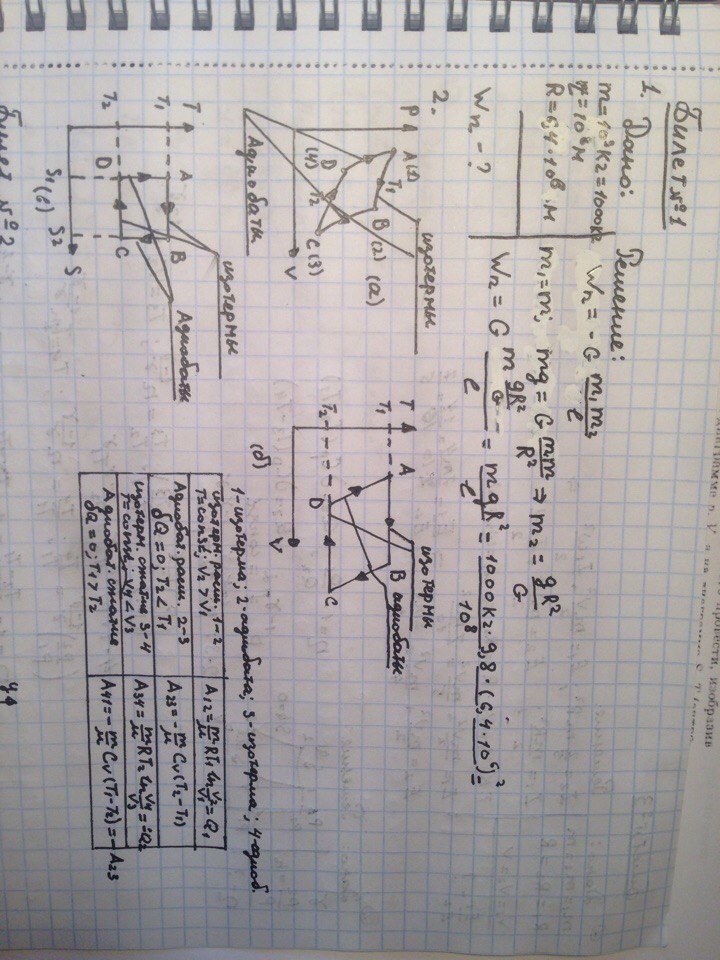 Билет №1
1. Дано:
m=10³кг=1000кг
r=10⁸м
R=6,4·10⁶ м
Wп-?
Решение:
Wп = -G m₁m₂/r
m₁=m; mg = G mm/R² ⇒ m₂ = gR²/G
Wп = G m gR²/G / r = mgR²/r = 1000кг·9,8·(6,4·10⁶)²/10⁸ =
2.
P
A(1)
T₁
B(2)
(а)
D
(4)
T₂
C(3)
V
изотермы
Адиабаты
T
T₁
T₂
A
B
C
D
V
(б)
изотермы
адиабаты
T
T₁
T₂
A
B
C
D
S₁
(в)
S₂
S
изотермы
Адиабаты
1-изотерма; 2-адиабата; 3-изотерма; 4-адиаб.
изотерм. расш. 1-2
T=const, V₂>V₁
A₁₂= m/μ RT₁ ln V₂/V₁ = Q₁
Адиабат. расш. 2-3
δQ=0; T₂<T₁
A₂₃= - m/μ Cv(T₂-T₁)
изотерм. сжатие 3-4
T=const, V₄<V₃
A₃₄= m/μ RT₂ ln V₄/V₃ = -Q₂
Адиабат. сжатие
δQ=0; T₁>T₂
A₄₁= - m/μ Cv(T₁-T₂) = -A₂₃
Билет №2